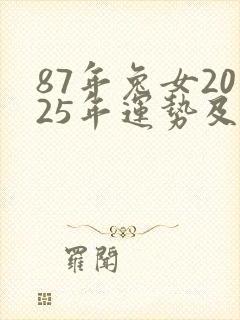 87年兔女20
25年運勢及
羅聞